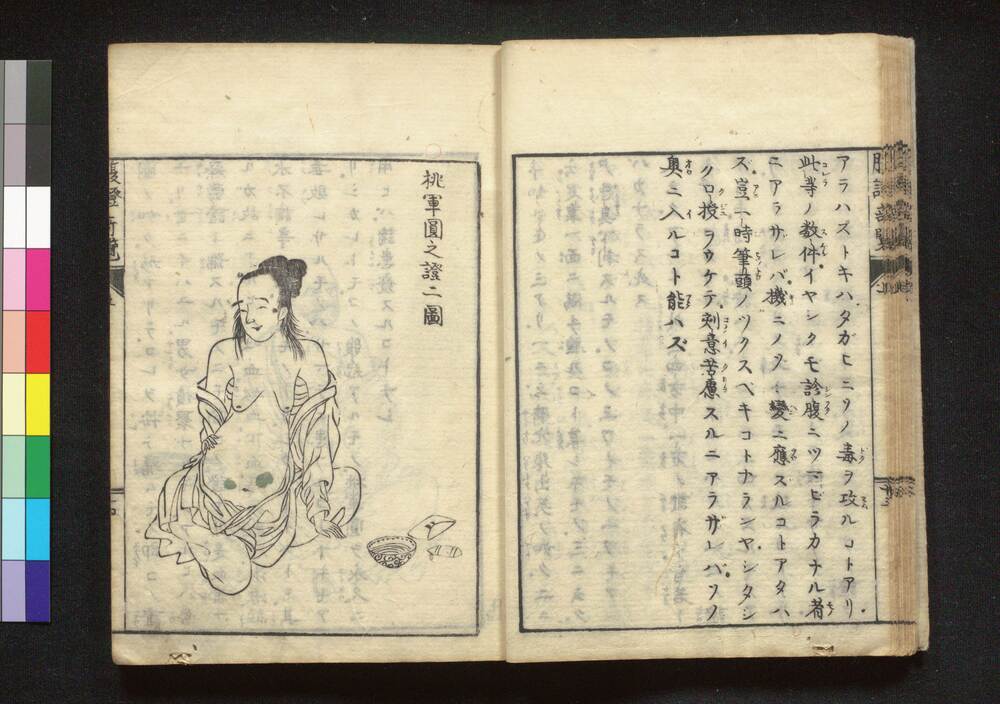 アラハズトキハタガヒニソノ毒ヲ攻ルコトアリ。
此等ノ数件。イヤシクモ診腹ニツマビラカナル者
ニアラサレバ。機ニノゾミ變ニ應ズルコトアタハ
ズ。豈一時筆頭ノツクスベキコトナランヤ。シタシ
ク口授ヲウケテ。刻意苦慮スルニアラザレバ。ソノ
奥ニ入ルコト能ハズ
桃軍圓之證二圖